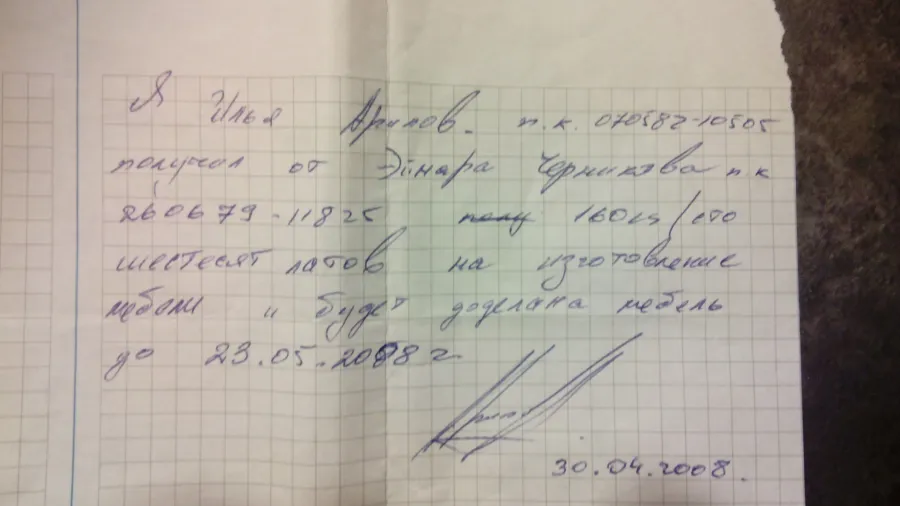 Я Илья Арипов. п.к. 070582-10505
получил от Эйнара Черникова п к
260679-11825 160 Ls / сто
шестесят латов на изготовление
мебели и будет доделана мебель
до 23.05.2008 г.
30.04.2008.